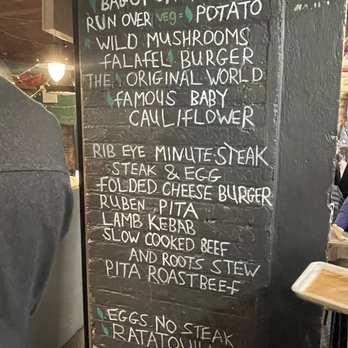 RUN OVER veg. POTATO
WILD MUSHROOMS
FALAFEL BURGER
THE ORIGINAL WORLD
FAMOUS BABY
CAULIFLOWER
RIB EYE MINUTE STEAK
STEAK & EGG
FOLDED CHEESE BURGER
RUBEN PITA
LAMB KEBAB
SLOW COOKED BEEF
AND ROOTS STEW
PITA ROASTBEEF
EGGS NO STEAK